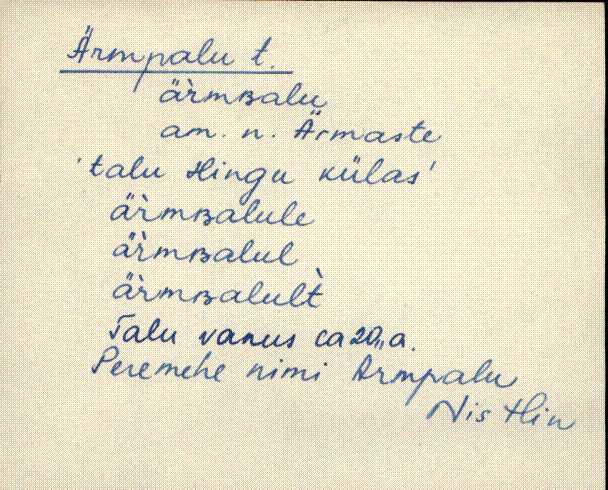 Ärmpalu t.
ä̀rmʙalu
am. n. Ärmaste
'talu Hingu külas'
ä̀rmʙalule
ä̀rmʙalul
ä̀rmʙalult̀
Talu vanus ca 20 a.
Peremehe nimi Armpalu
Nis Hin